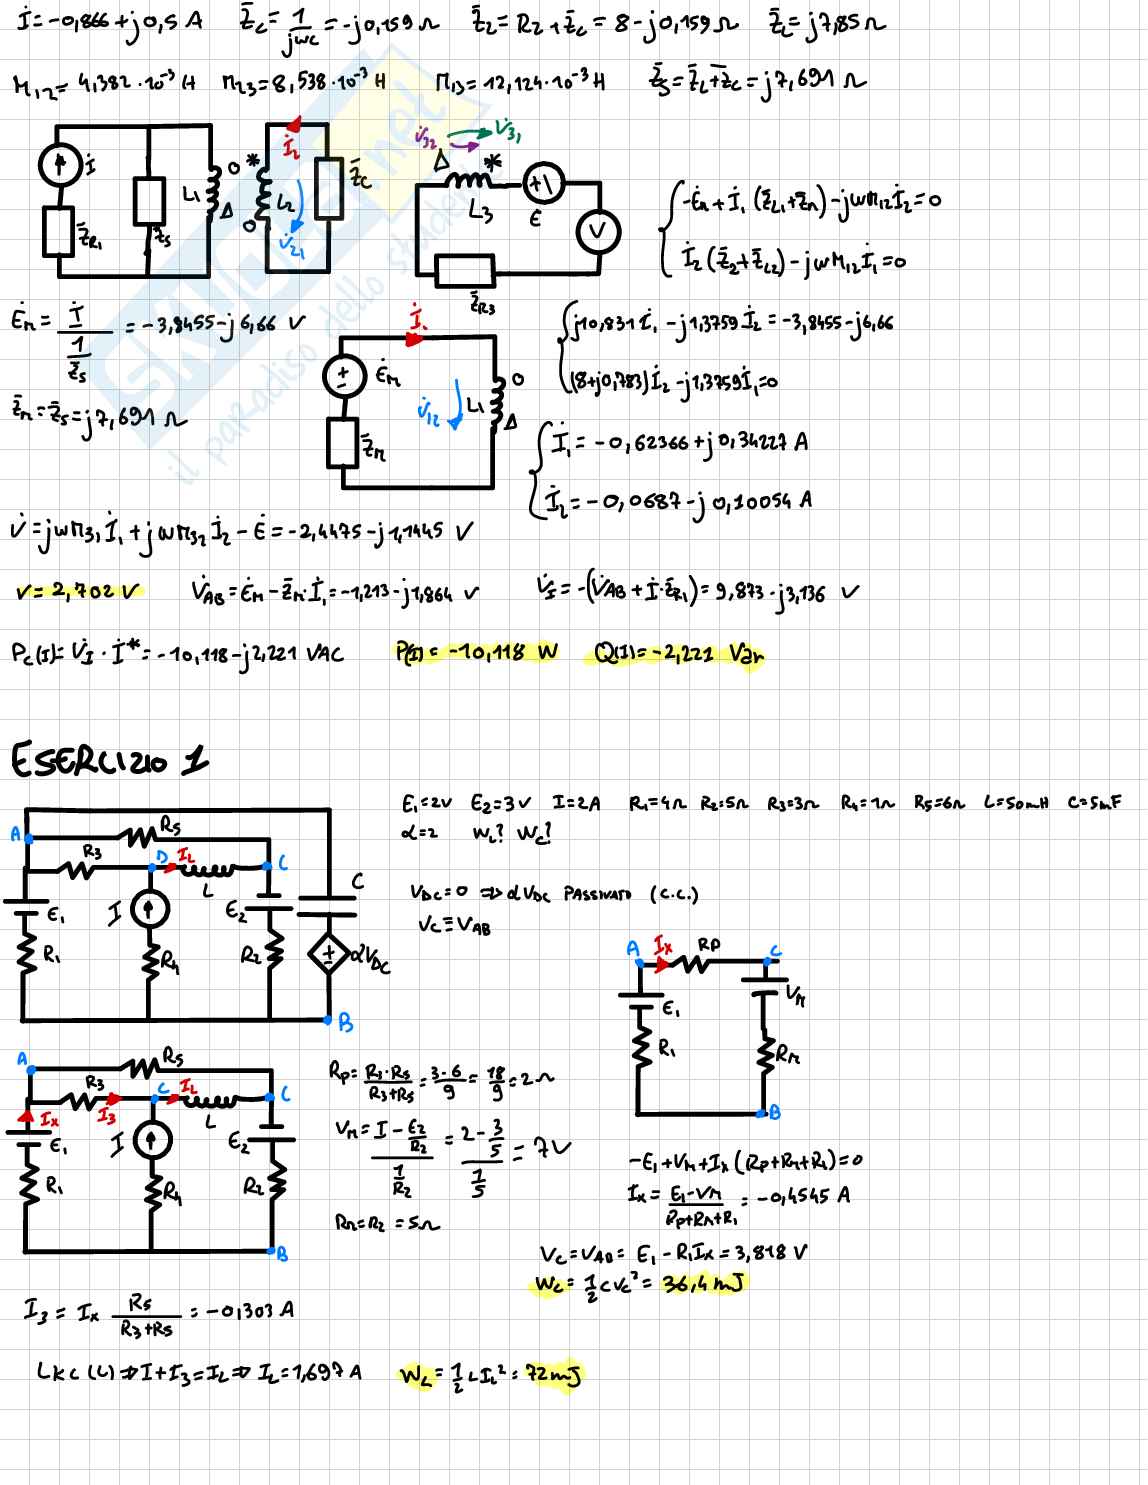 İ=-0,866+j0,5 A   Z̄c=1/jωc=-j0,159Ω   Z̄2=R2+Z̄c=8-j0,159Ω   Z̄L=j7,85Ω
M12=4,382·10⁻³ H   M23=8,538·10⁻³ H   M13=12,124·10⁻³ H   Z̄s=Z̄L+Z̄c=j7,691 Ω
V̇32 V̇31
İ   Z̄R1   Z̄s   L1   O   Δ   *   O   L2   İ2   Z̄c   V̇21   Δ   *   L3   +   E   V   Z̄R3
-Ėm+İ1(Z̄L1+Z̄m)-jωM12İ2=0
İ2(Z̄2+Z̄L2)-jωM12İ1=0
Ėm=İ/(1/Z̄s)=-3,8455-j6,66 V
Z̄m=Z̄s=j7,691 Ω
İ1   Ėm   Z̄m   V̇12   L1   O   Δ
j10,831İ1-j1,3759İ2=-3,8455-j6,66
(8+j0,783)İ2-j1,3759İ1=0
İ1=-0,62366+j0,34227 A
İ2=-0,0687-j0,10054 A
V̇=jωM31İ1+jωM32İ2-Ė=-2,4475-j1,1445 V
V=2,702 V   V̇AB=Ėm-Z̄m·İ1=-1,213-j1,864 V   V̇I=-(V̇AB+İ·Z̄R1)=9,873-j3,136 V
Pc(I)=V̇I·İ*=-10,118-j2,221 VAC   P(I)=-10,118 W   Q(I)=-2,221 Var
SKUOLA.net
il paradiso dello studente
ESERCIZIO 1
E1=2V E2=3V I=2A R1=4Ω R2=5Ω R3=3Ω R4=1Ω R5=6Ω L=50mH C=5mF
α=2   WL? WC?
A   R5   R3   D   IL   L   C   E1   I   E2   C   R1   R4   R2   αVDC   B
VDC=0 => αVDC PASSIVATO (C.C.)
VC≡VAB
A   Ix   RP   C   E1   VM   R1   RM   B
A   R5   R3   C   IL   C   Ix   I3   L   E1   I   E2   R1   R4   R2   B
Rp=R3·R5/(R3+R5)=3·6/9=18/9=2Ω
VM=(I-E2/R2)/(1/R2)=(2-3/5)/(1/5)=7V
RM=R2=5Ω
-E1+VM+Ix(Rp+RM+R1)=0
Ix=(E1-VM)/(Rp+RM+R1)=-0,4545 A
VC=VAB=E1-R1Ix=3,818 V
WC=1/2CVC²=36,4mJ
I3=Ix R5/(R3+R5)=-0,303 A
LKC(C)=>I+I3=IL=>IL=1,697 A   WL=1/2LIL²=72mJ